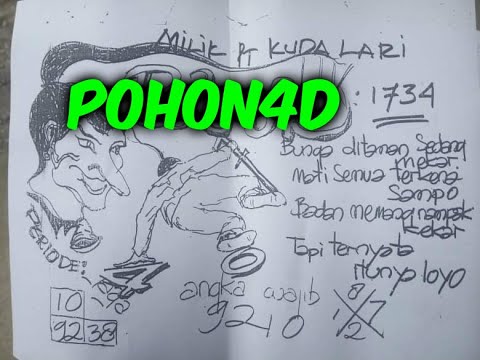 MILIK PT KUDA LARI
POHON4D
: 1734
Bunga ditanam Sedang
mekar.
mati Semua terkena
Sampo
Badan memang nampak
kekar
Tapi ternyata
itunya loyo
PERIODE:
4
0
angka wajib
9210
10
92 38
8
1 X 7
2